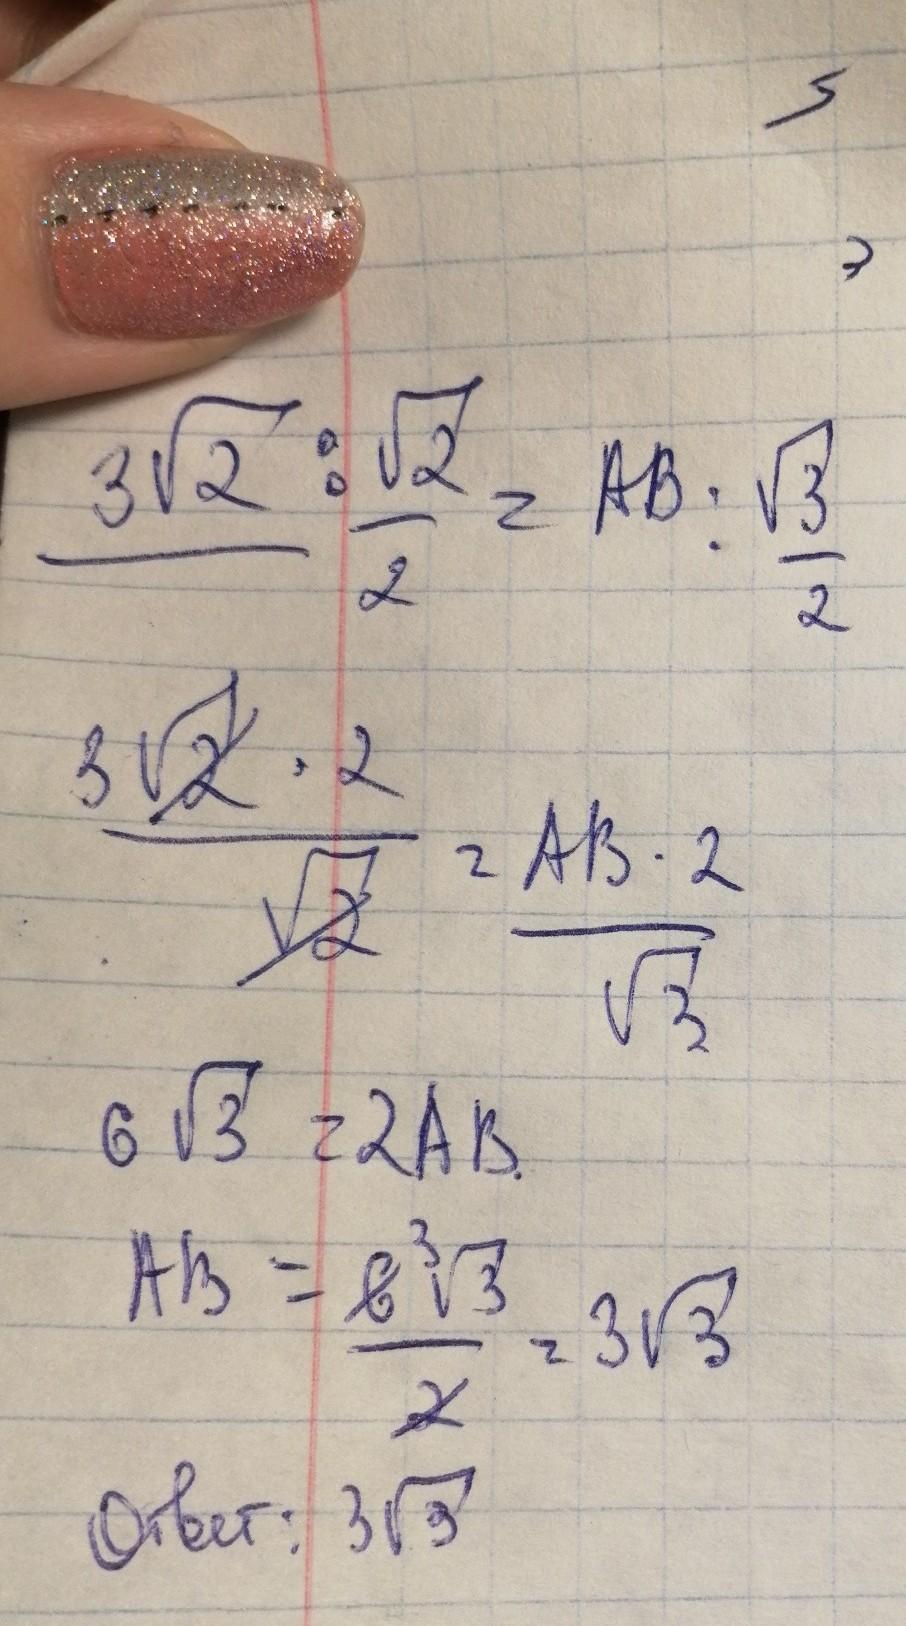 3√2 : √2/2 = AB : √3/2
3√2 · 2/√2 = AB · 2/√3
6√3 = 2AB.
AB = 6 3√3/2 = 3√3
Ответ: 3√3